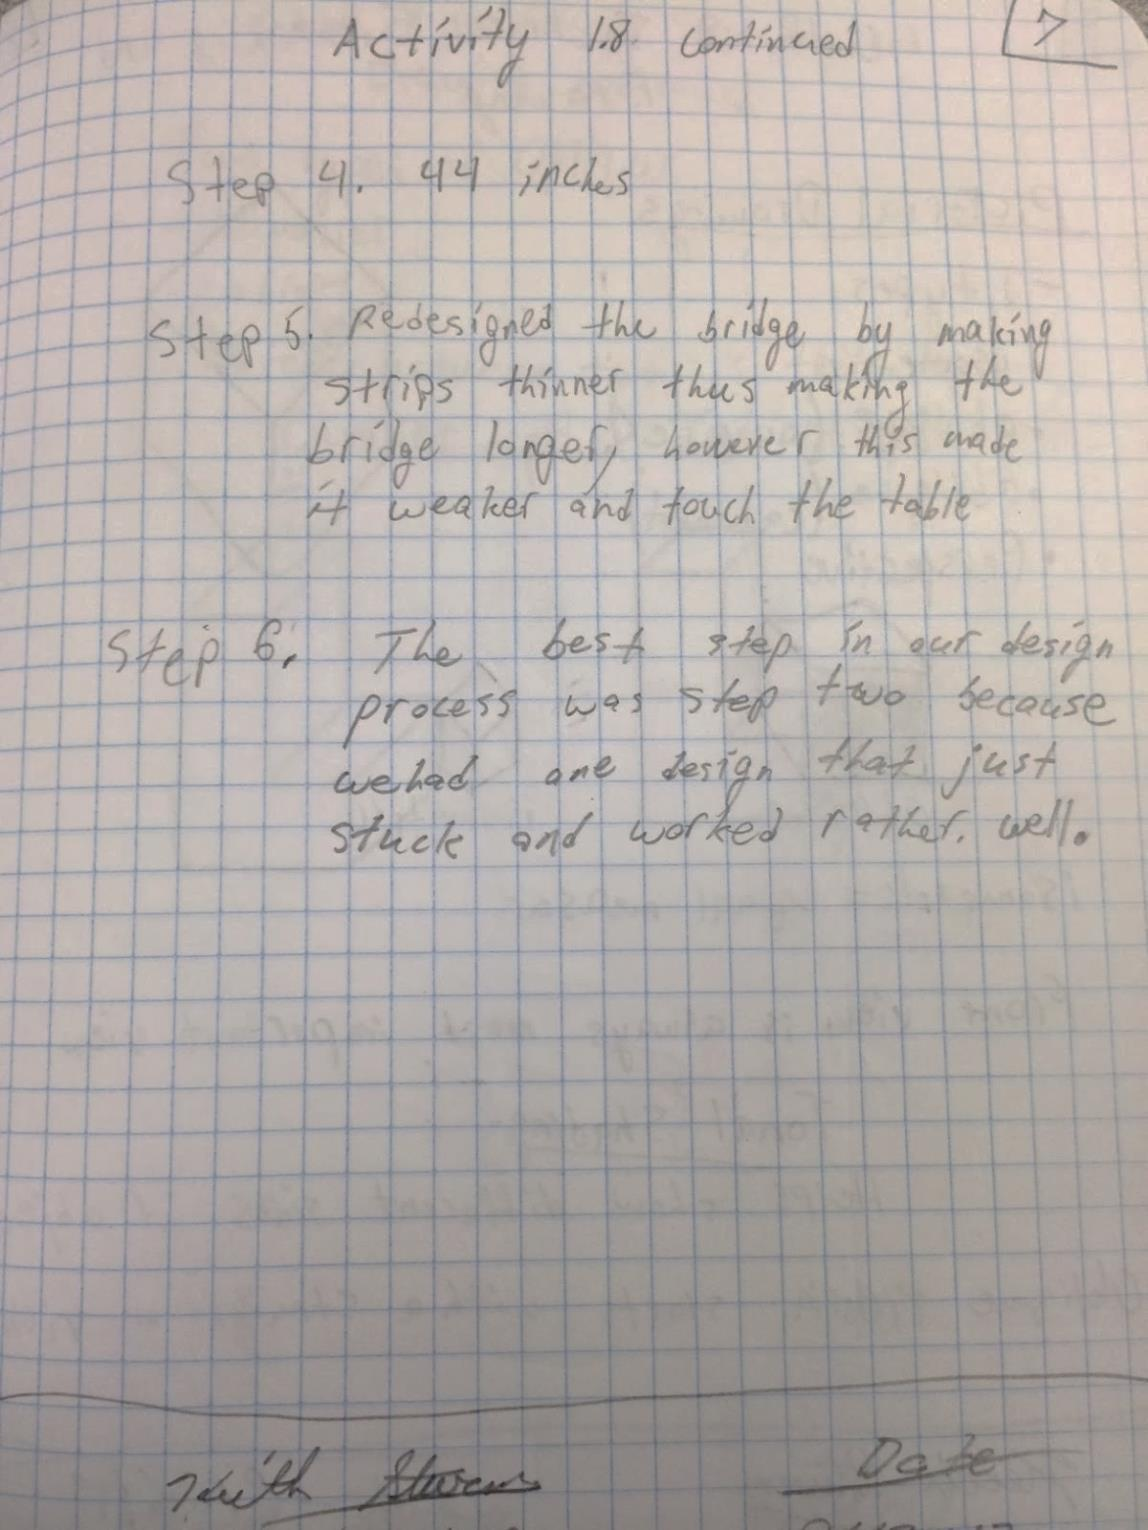 Activity 1.8 continued
7
Step 4. 44 inches
Step 5. Redesigned the bridge by making
strips thinner thus making the
bridge longer, however this made
it weaker and touch the table
Step 6. The best step in our design
process was step two because
we had one design that just
stuck and worked rather. well.
Keith
Date